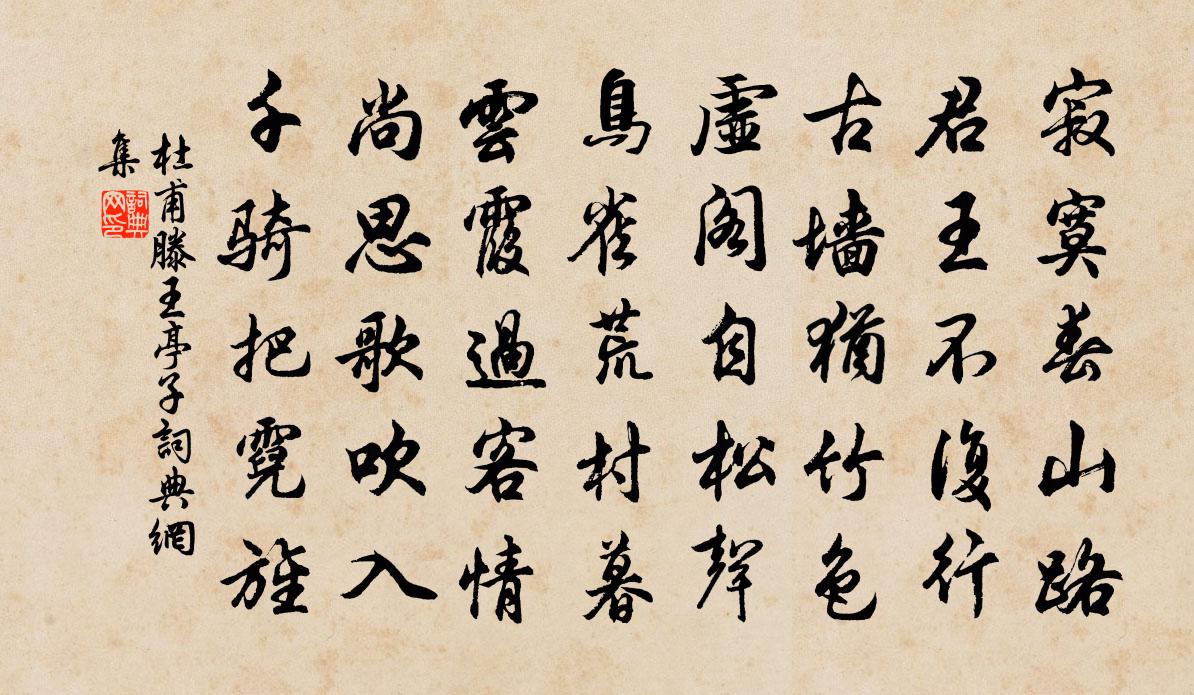 寂寞春山路
君王不復行
古墙猶竹色
虛閣自松聲
鳥雀荒村暮
雲霞過客情
尚思歌吹入
千骑把霓旌
杜甫滕王亭子詞典網
集
詞典
网印